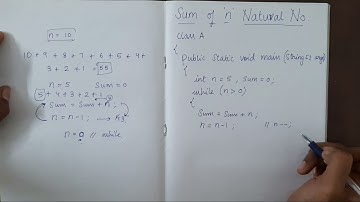 n = 10
10 + 9 + 8 + 7 + 6 + 5 + 4 +
3 + 2 + 1 = 55
n = 5 Sum = 0
5 + 4 + 3 + 2 + 1
Sum = Sum + n ;
n = n - 1 ;
n = 0 // while
Sum of 'n' Natural No
Class A
{
Public Static void main (String
{
int n = 5 , Sum = 0 ;
while (n > 0)
{
Sum = Sum + n ;
n = n - 1 ; // n-- ;